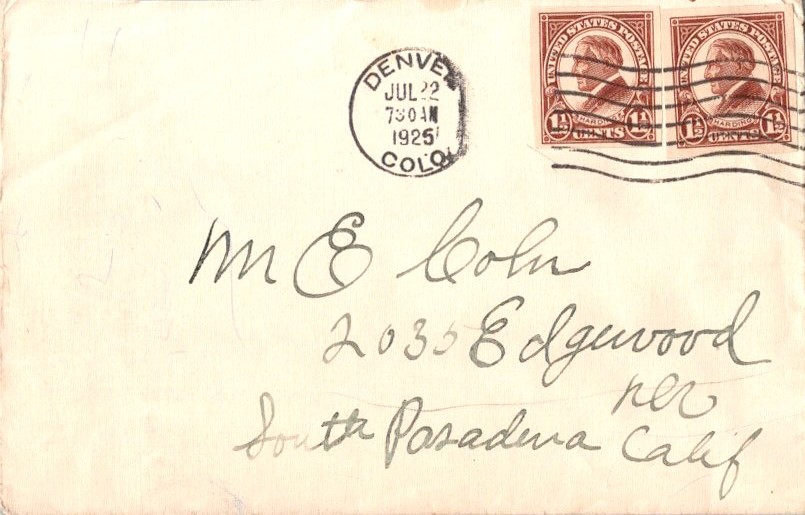 DENVER
JUL 22
730 AM
1925
COLO.
UNITED STATES POSTAGE
HARDING
1½ CENTS 1½
UNITED STATES POSTAGE
HARDING
1½ CENTS 1½
Mr E Cohn
2035 Edgewood
South Pasadena Calif